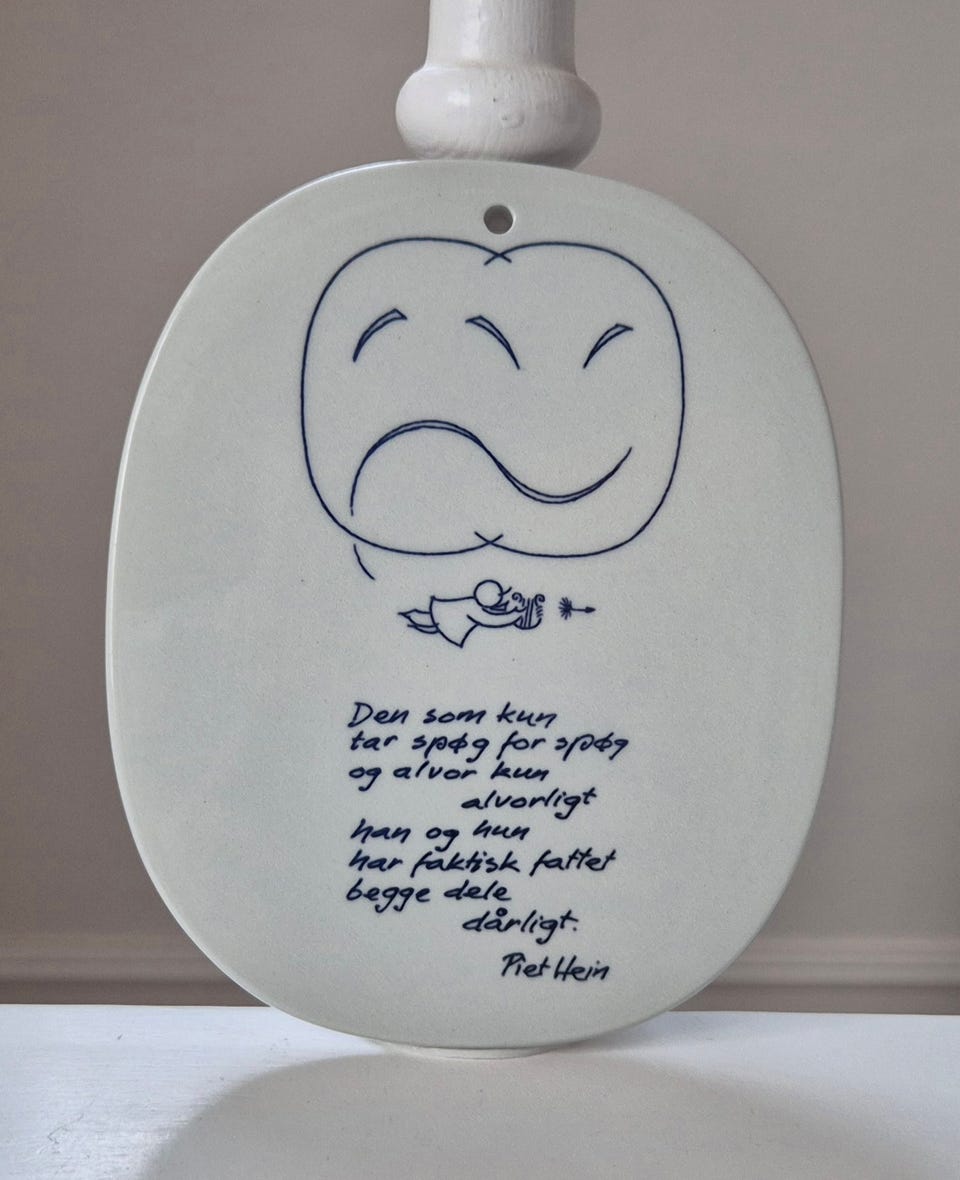 Den som kun
tar spøg for spøg
og alvor kun
alvorligt
han og hun
har faktisk fattet
begge dele
dårligt.
Piet Hein